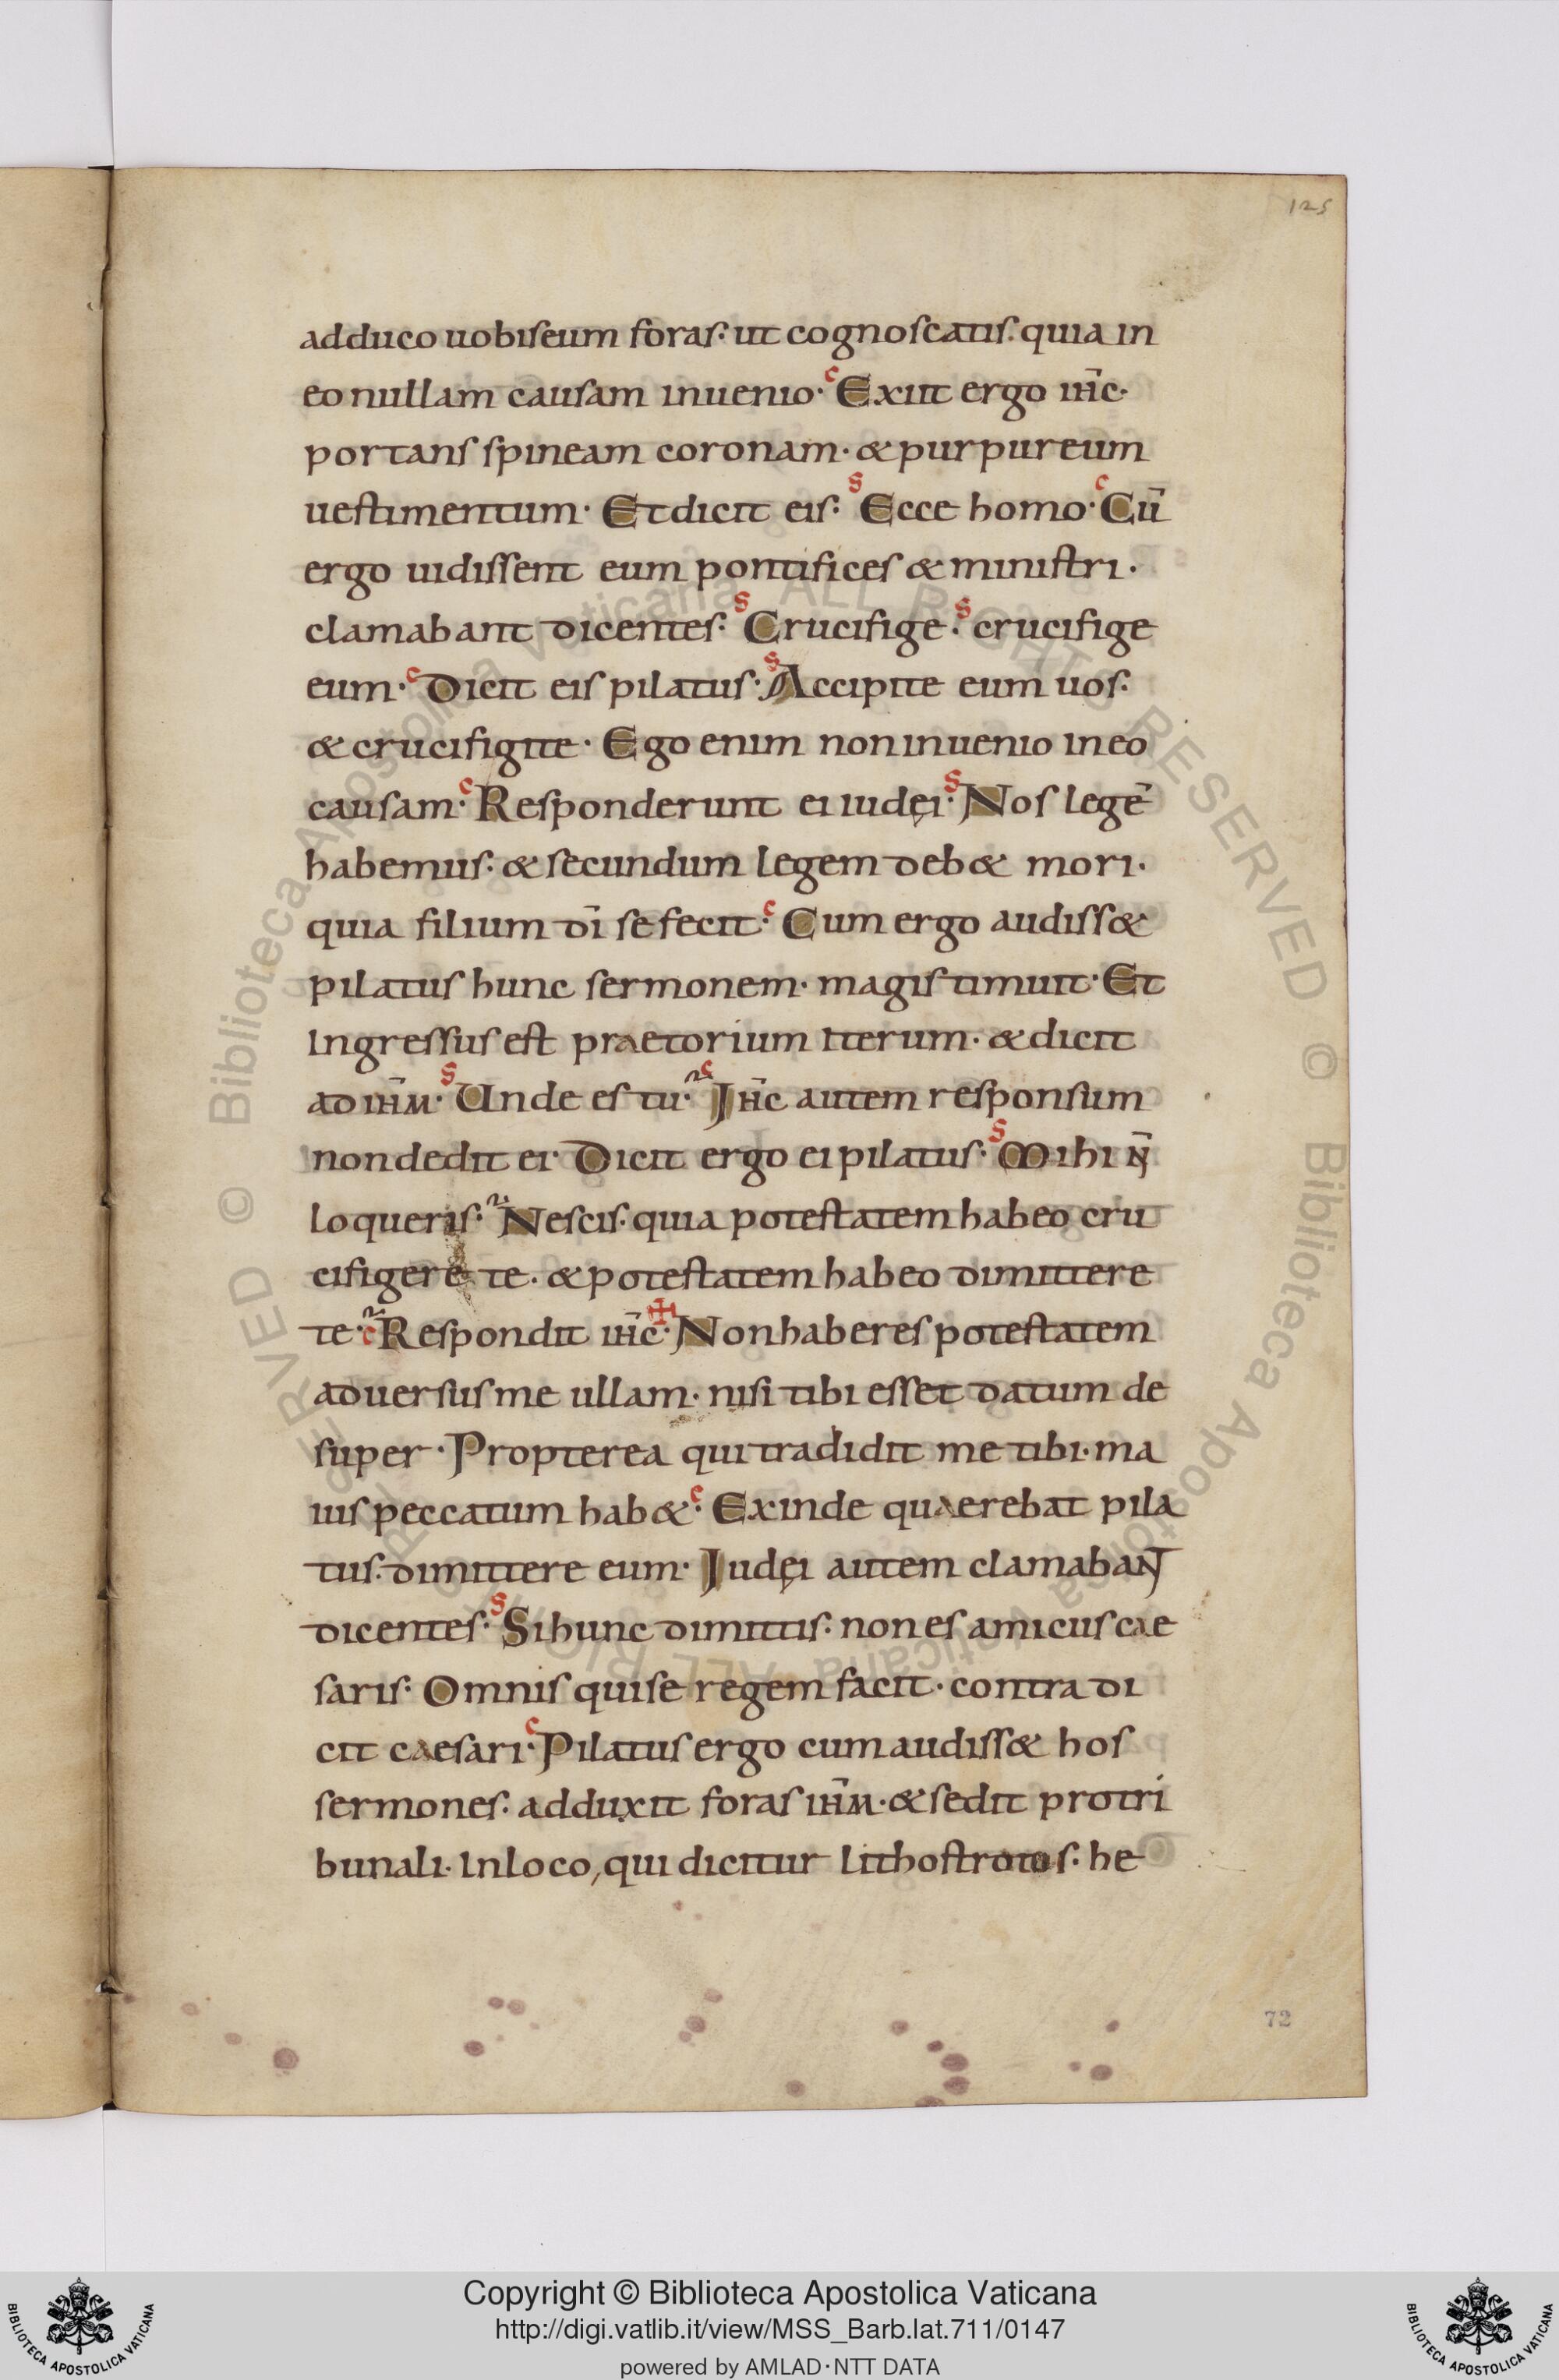 125
adduco uobiseum foras· ut cognoscatis· quia in
eo nullam causam inuenio· c Exiit ergo ih̄c·
portans spineam coronam· & purpureum
uestimentum· Et dicit eis· s Ecce homo· c Cū
ergo uidissent eum pontifices & ministri·
clamabant dicentes· s Crucifige· s crucifige
eum· c Dicit eis pilatus· s Accipite eum uos·
& crucifigite· Ego enim non inuenio in eo
causam· c Responderunt ei iudęi· s Nos legē
habemus· & secundum legem deb& mori·
quia filium dī se fecit· c Cum ergo audiss&
pilatus hunc sermonem· magis timuit· Et
ingressus est praetorium iterum· & dicit
ad ih̄m· s Unde es tu· c Jh̄c autem responsum
non dedit ei· Dicit ergo ei pilatus· s Mihi n̄
loqueris· Nescis· quia potestatem habeo cru
cifigere te· & potestatem habeo dimittere
te· c Respondit ih̄c· ✠ Non haberes potestatem
aduersus me ullam· nisi tibi esset datum de
super· Propterea qui tradidit me tibi· ma
ius peccatum hab&· c Exinde quaerebat pila
tus· dimittere eum· Judęi autem clamabant
dicentes· s Si hunc dimittis· non es amicus cae
saris· Omnis qui se regem facit· contra di
cit caesari· c Pilatus ergo cum audiss& hos
sermones· adduxit foras ih̄m· & sedit pro tri
bunali· In loco, qui dicitur lithostrotos· he
72
Copyright © Biblioteca Apostolica Vaticana
http://digi.vatlib.it/view/MSS_Barb.lat.711/0147
powered by AMLAD·NTT DATA
BIBLIOTECA APOSTOLICA VATICANA
BIBLIOTECA APOSTOLICA VATICANA